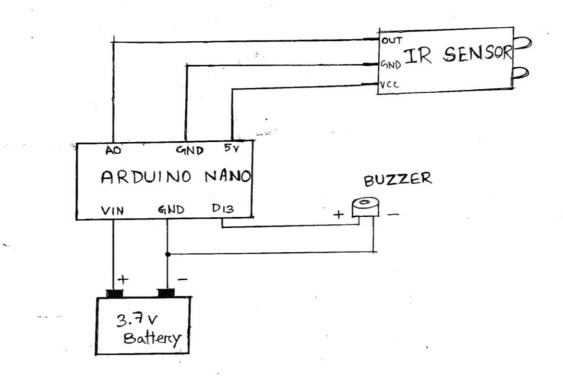 OUT
GND
VCC
IR SENSOR
AO
GND
5V
ARDUINO NANO
VIN
GND
D13
BUZZER
+
-
+
-
3.7V
Battery